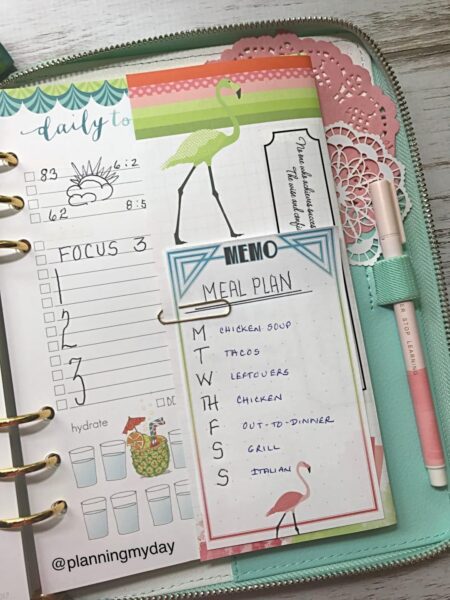 daily to
83 6:2
62 8:5
FOCUS 3
1
2
3
hydrate
No one who achieves success
The wise and confid
MEMO
MEAL PLAN
M CHICKEN SOUP
T TACOS
W LEFTOVERS
TH CHICKEN
F OUT-TO-DINNER
S GRILL
S ITALIAN
ER STOP LEARNING
@planningmyday